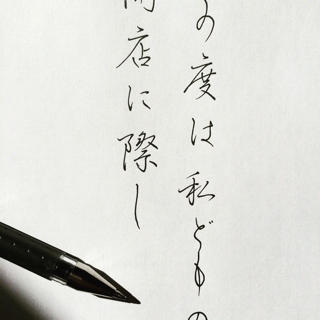 の度は私どもの
店に際し